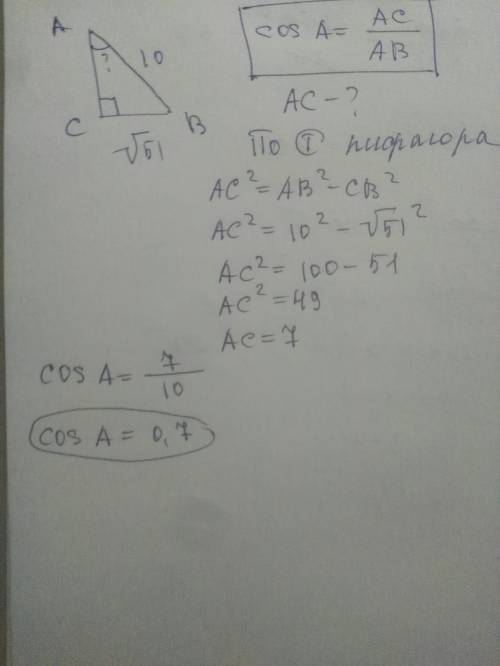 A
?
10
C
B
√51
cos A = AC/AB
AC - ?
По Т Пифагора
AC² = AB² - CB²
AC² = 10² - √51²
AC² = 100 - 51
AC² = 49
AC = 7
cos A = 7/10
cos A = 0,7